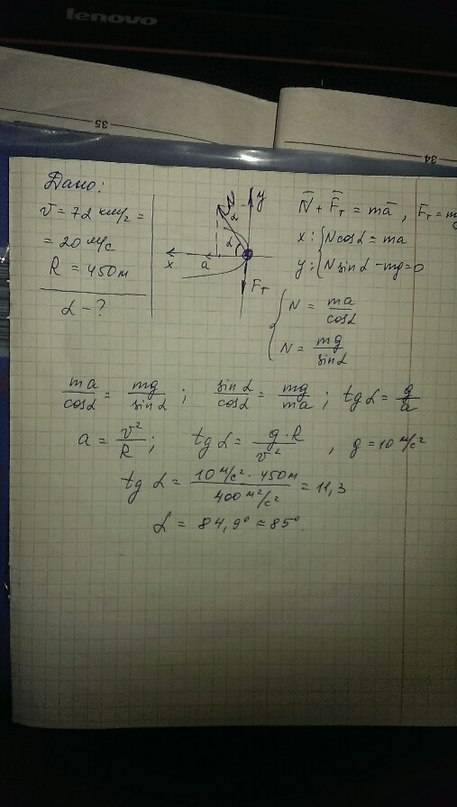 lenovo
35
34
Дано:
v = 72 км/ч =
= 20 м/с
R = 450 м
α - ?
N
y
α
α
x
a
Fт
N̄ + F̄т = mā , F̄т = mg
x: { N cosα = ma
y: { N sinα - mg = 0
{ N = ma/cosα
N = mg/sinα
ma/cosα = mg/sinα ; sinα/cosα = mg/ma ; tgα = g/a
a = v²/R ; tgα = g·R/v² , g = 10 м/с²
tgα = 10 м/с² · 450 м / 400 м²/с² = 11,3
α = 84,9° ≈ 85°